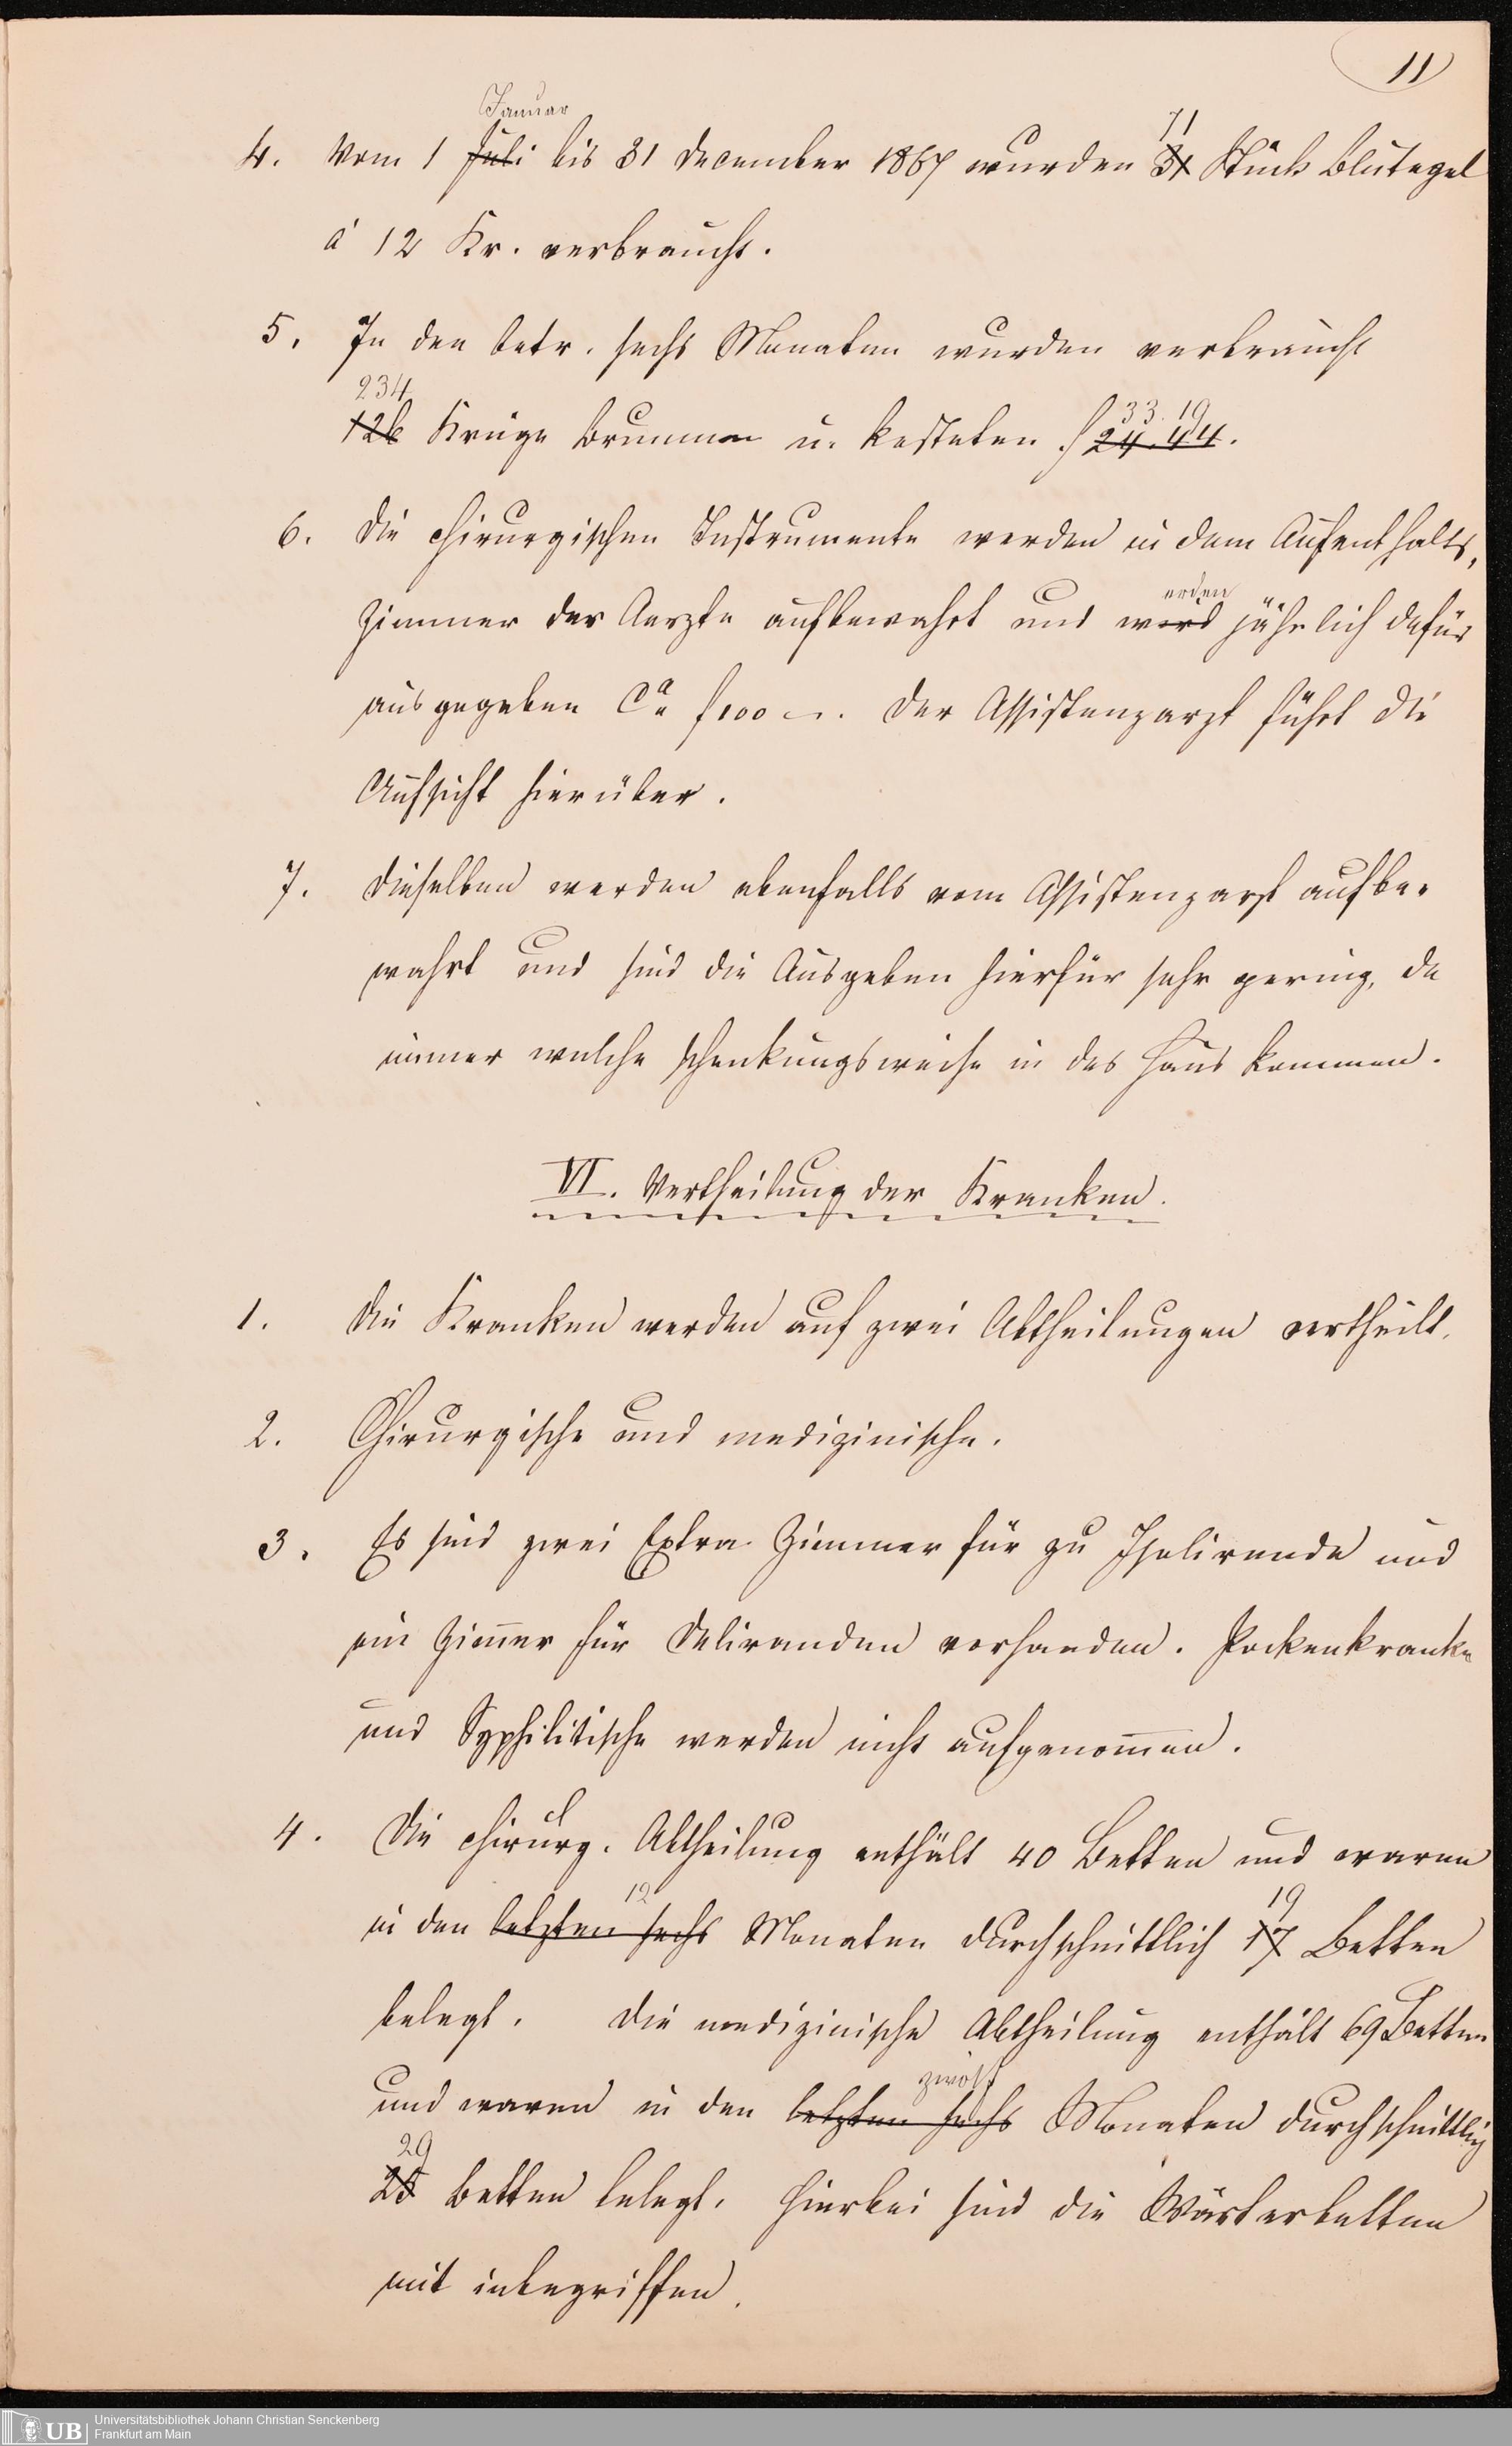 11
Januar
4. Vom 1 Juli bis 31 December 1867 wurden 31 Stück Blutegel
71
á 12 Kr. verbraucht.
5. In den betr. sechs Monaten wurden verbraucht
234 33. 19
126 Krüge Brunnen u. kosteten f 24. 44.
6. Die chirurgischen Instrumente werden in dem Aufenthalts,
Zimmer der Aerzte aufbewahrt und wird jährlich dafür
erden
ausgegeben Ca f 100 –. Der Assistenzarzt führt die
Aufsicht hierüber.
7. Dieselben werden ebenfalls vom Assistenzarzt aufbe-
wahrt und sind die Ausgaben hierfür sehr gering, da
immer welche schenkungsweise in das Haus kommen.
VI. Vertheilung der Kranken.
1. Die Kranken werden auf zwei Abtheilungen vertheilt.
2. Chirurgische und medizinische.
3. Es sind zwei Extra Zimmer für zu Isolirende und
ein Zim̅er für Deliranden vorhanden. Pockenkranke
und Syphilitische werden nicht aufgenom̅en.
4. Die chirurg. Abtheilung enthält 40 Betten und waren
12 19
in den letzten sechs Monaten durchschnittlich 17 Betten
belegt. Die medizinische Abtheilung enthält 69 Betten
zwölf
und waren in den letzten sechs Monaten durchschnittlich
29
25 Betten belegt. Hierbei sind die Wärterbetten
mit inbegriffen.
UB Universitätsbibliothek Johann Christian Senckenberg
Frankfurt am Main